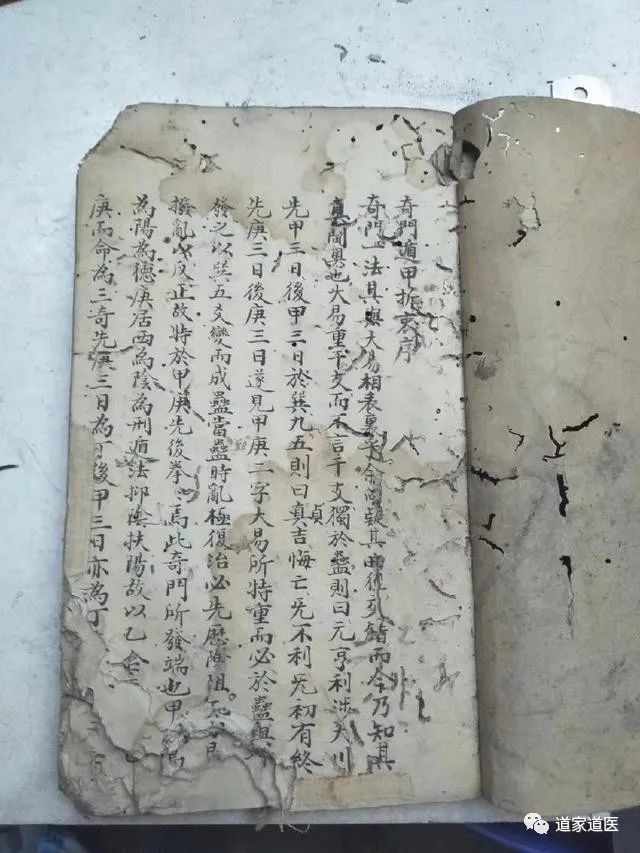 奇門遁甲析玄序
奇門一法其與大易相表裏 余 疑其 而今乃知其
間奥也大易重干支而不言干支獨於蠱則曰元亨利涉大川
先甲三日後甲三日於巽九五則曰真吉悔亡旡不利旡初有終
貞
先庚三日後庚三日遂見甲庚二字大易所特重而必於蠱與
發之以巽五爻變而成蠱當蠱時亂極復治必先歷險阻
撥亂 反正故特於甲庚先後拳〻焉此奇門所發端也甲 為
為陽為德庚居西為陰為刑遁法抑陰扶陽故以乙合
庚而命為三奇先庚三日為丁後甲三日亦為丁
道家道医